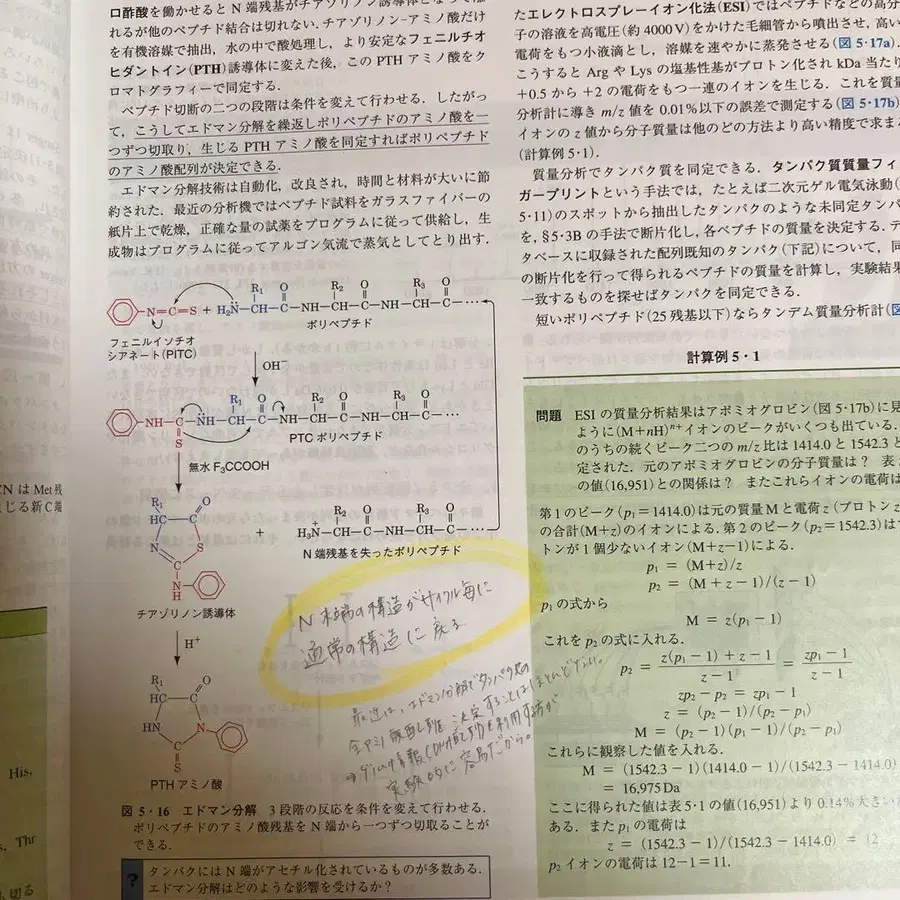 ロ酢酸を働かせると N 端残基がチアゾリノン誘導体となって
れるが他のペプチド結合は切れない. チアゾリノン-アミノ酸だけ
を有機溶媒で抽出, 水の中で酸処理し, より安定なフェニルチオ
ヒダントイン(PTH)誘導体に変えた後, この PTH アミノ酸をク
ロマトグラフィーで同定する.
ペプチド切断の二つの段階は条件を変えて行わせる. したがっ
て, こうしてエドマン分解を繰返しポリペプチドのアミノ酸を一
つずつ切取り, 生じる PTH アミノ酸を同定すればポリペプチド
のアミノ酸配列が決定できる.
エドマン分解技術は自動化, 改良され, 時間と材料が大いに節
約された. 最近の分析機ではペプチド試料をガラスファイバーの
紙片上で乾燥, 正確な量の試薬をプログラムに従って供給し, 生
成物はプログラムに従ってアルゴン気流で蒸気としてとり出す.
R₁ O R₂ O R₃ O
N=C=S + H₂N̈—CH—C—NH—CH—C—NH—CH—C—…
ポリペプチド
フェニルイソチオ
シアネート(PITC)
OH⁻
R₁ O R₂ O R₃ O
NH—C—N̈H—CH—C—NH—CH—C—NH—CH—C—…
S
PTC ポリペプチド
無水 F₃CCOOH
R₁ O
HC—C
N S
C
NH
チアゾリノン誘導体
+
R₂ O R₃ O
H₃N⁺—CH—C—NH—CH—C—…
N 端残基を失ったポリペプチド
H⁺
R₁ O
HC—C
HN N
C
S
PTH アミノ酸
N末端の構造がサイクル毎に
通常の構造に戻る
最近は, エドマン分解でタンパク質の
全アミノ酸配列を決定することはほとんどない.
実験的に容易だから。
図 5・16 エドマン分解 3 段階の反応を条件を変えて行わせる.
ポリペプチドのアミノ酸残基を N 端から一つずつ切取ることが
できる.
? タンパクには N 端がアセチル化されているものが多数ある.
エドマン分解はどのような影響を受けるか?
CN は Met 残
じる新 C 端
His,
Thr
切る
たエレクトロスプレーイオン化法(ESI)ではペプチドなどの高分
子の溶液を高電圧(約 4000 V)をかけた毛細管から噴出させ, 高い
電荷をもつ小液滴とし, 溶媒を速やかに蒸発させる(図 5・17a).
こうすると Arg や Lys の塩基性基がプロトン化され kDa 当たり
+0.5 から +2 の電荷をもつ一連のイオンを生じる. これを質量
分析計に導き m/z 値を 0.01% 以下の誤差で測定する(図 5・17b)
イオンの z 値から分子質量は他のどの方法より高い精度で求ま
(計算例 5・1).
質量分析でタンパク質を同定できる. タンパク質質量フィ
ガープリントという手法では, たとえば二次元ゲル電気泳動(
5・11)のスポットから抽出したタンパクのような未同定タンパ
を, §5・3B の手法で断片化し, 各ペプチドの質量を決定する. デ
タベースに収録された配列既知のタンパク(下記)について, 同
の断片化を行って得られるペプチドの質量を計算し, 実験結果
一致するものを探せばタンパクを同定できる.
短いポリペプチド(25 残基以下)ならタンデム質量分析計(図
計算例 5・1
問題 ESI の質量分析結果はアポミオグロビン(図 5・17b)に見
ように(M+nH)ⁿ⁺イオンのピークがいくつも出ている.
のうちの続くピーク二つの m/z 比は 1414.0 と 1542.3 と
定された. 元のアポミオグロビンの分子質量は? 表
の値(16,951)との関係は? またこれらイオンの電荷は
第 1 のピーク(p₁=1414.0)は元の質量 M と電荷 z(プロトン z
の合計(M+z)のイオンによる. 第 2 のピーク(p₂=1542.3)は
トンが 1 個少ないイオン(M+z−1)による.
p₁ = (M+z)/z
p₂ = (M+z−1)/(z−1)
p₁ の式から
M = z(p₁−1)
これを p₂ の式に入れる.
p₂ = z(p₁−1)+z−1 / z−1 = zp₁−1 / z−1
zp₂−p₂ = zp₁−1
z = (p₂−1)/(p₂−p₁)
M = (p₂−1)(p₁−1)/(p₂−p₁)
これらに観察した値を入れる.
M = (1542.3−1)(1414.0−1)/(1542.3−1414.0)
= 16,975 Da
ここに得られた値は表 5・1 の値(16,951)より 0.14% 大きい
ある. また p₁ の電荷は
z = (1542.3−1)/(1542.3−1414.0) = 12
p₂ イオンの電荷は 12−1=11.